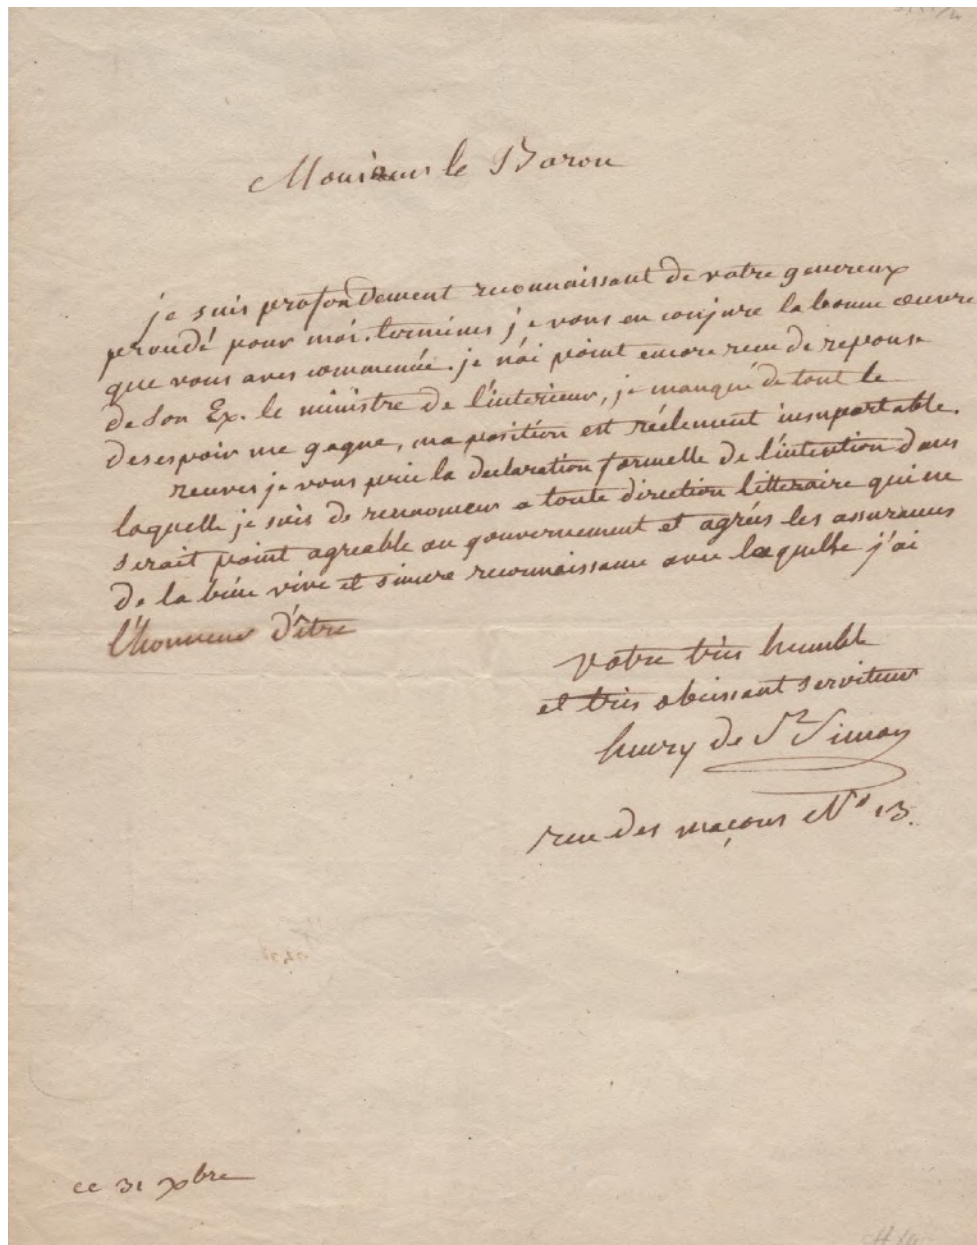 Monsieur le Baron
je suis profondement reconnaissant de votre genereux
procédé pour moi. terminés je vous en conjure la bonne œuvre
que vous aves commencée. je n'ai point encore recu de reponse
de Son Ex. le ministre de l'interieur, je manque de tout le
desespoir me gagne, ma position est réelement insuportable.
receves je vous prie la declaration formelle de l'intention dans
laquelle je suis de rennoncer a toute direction litteraire qui ne
serait point agreable au gouvernement et agréés les assurances
de la bien vive et sincere reconnaissance avec laquelle j'ai
l'honneur d'être
votre très humble
et très obeissant serviteur
henry de St Simon
rue des maçons No 13.
ce 31 xbre